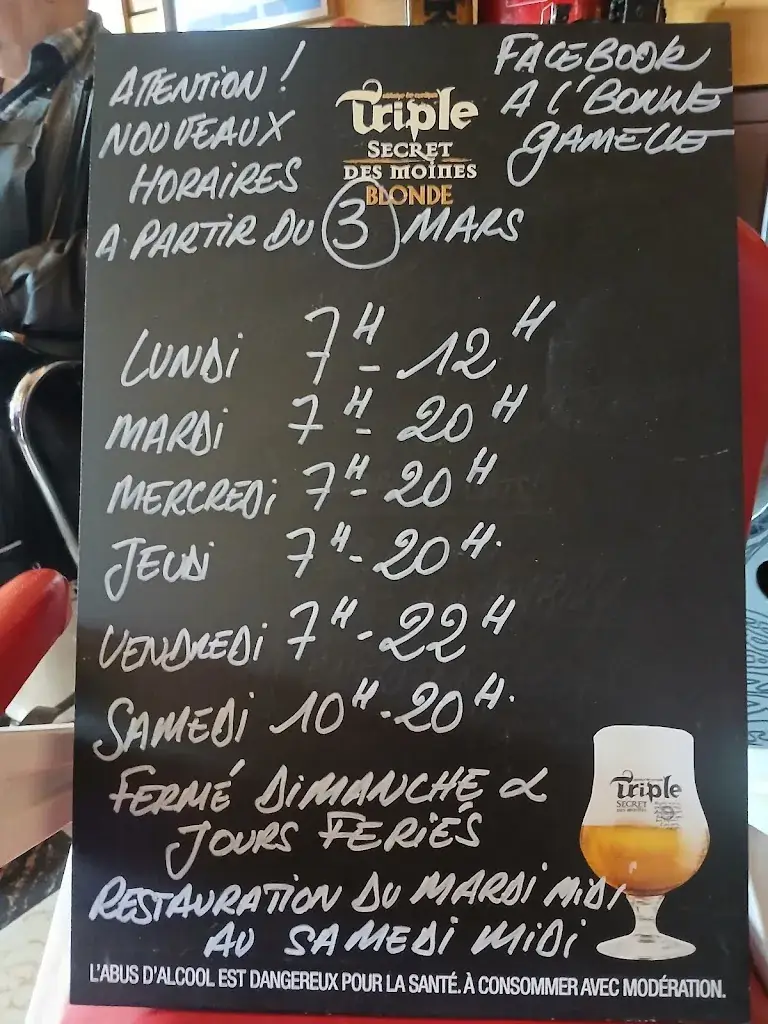 ATTENTION !
NOUVEAUX
HORAIRES
A PARTIR DU 3 MARS
FACEBOOK
A L'BONNE
GAMELLE
Triple
SECRET
DES MOINES
BLONDE
LUNDI 7H - 12H
MARDI 7H - 20H
MERCREDI 7H - 20H
JEUDI 7H - 20H.
VENDREDI 7H - 22H
SAMEDI 10H - 20H.
FERMÉ DIMANCHE &
JOURS FERIÉS
RESTAURATION DU MARDI MIDI
AU SAMEDI MIDI
Triple
SECRET
DES MOINES
L'ABUS D'ALCOOL EST DANGEREUX POUR LA SANTÉ. À CONSOMMER AVEC MODÉRATION.